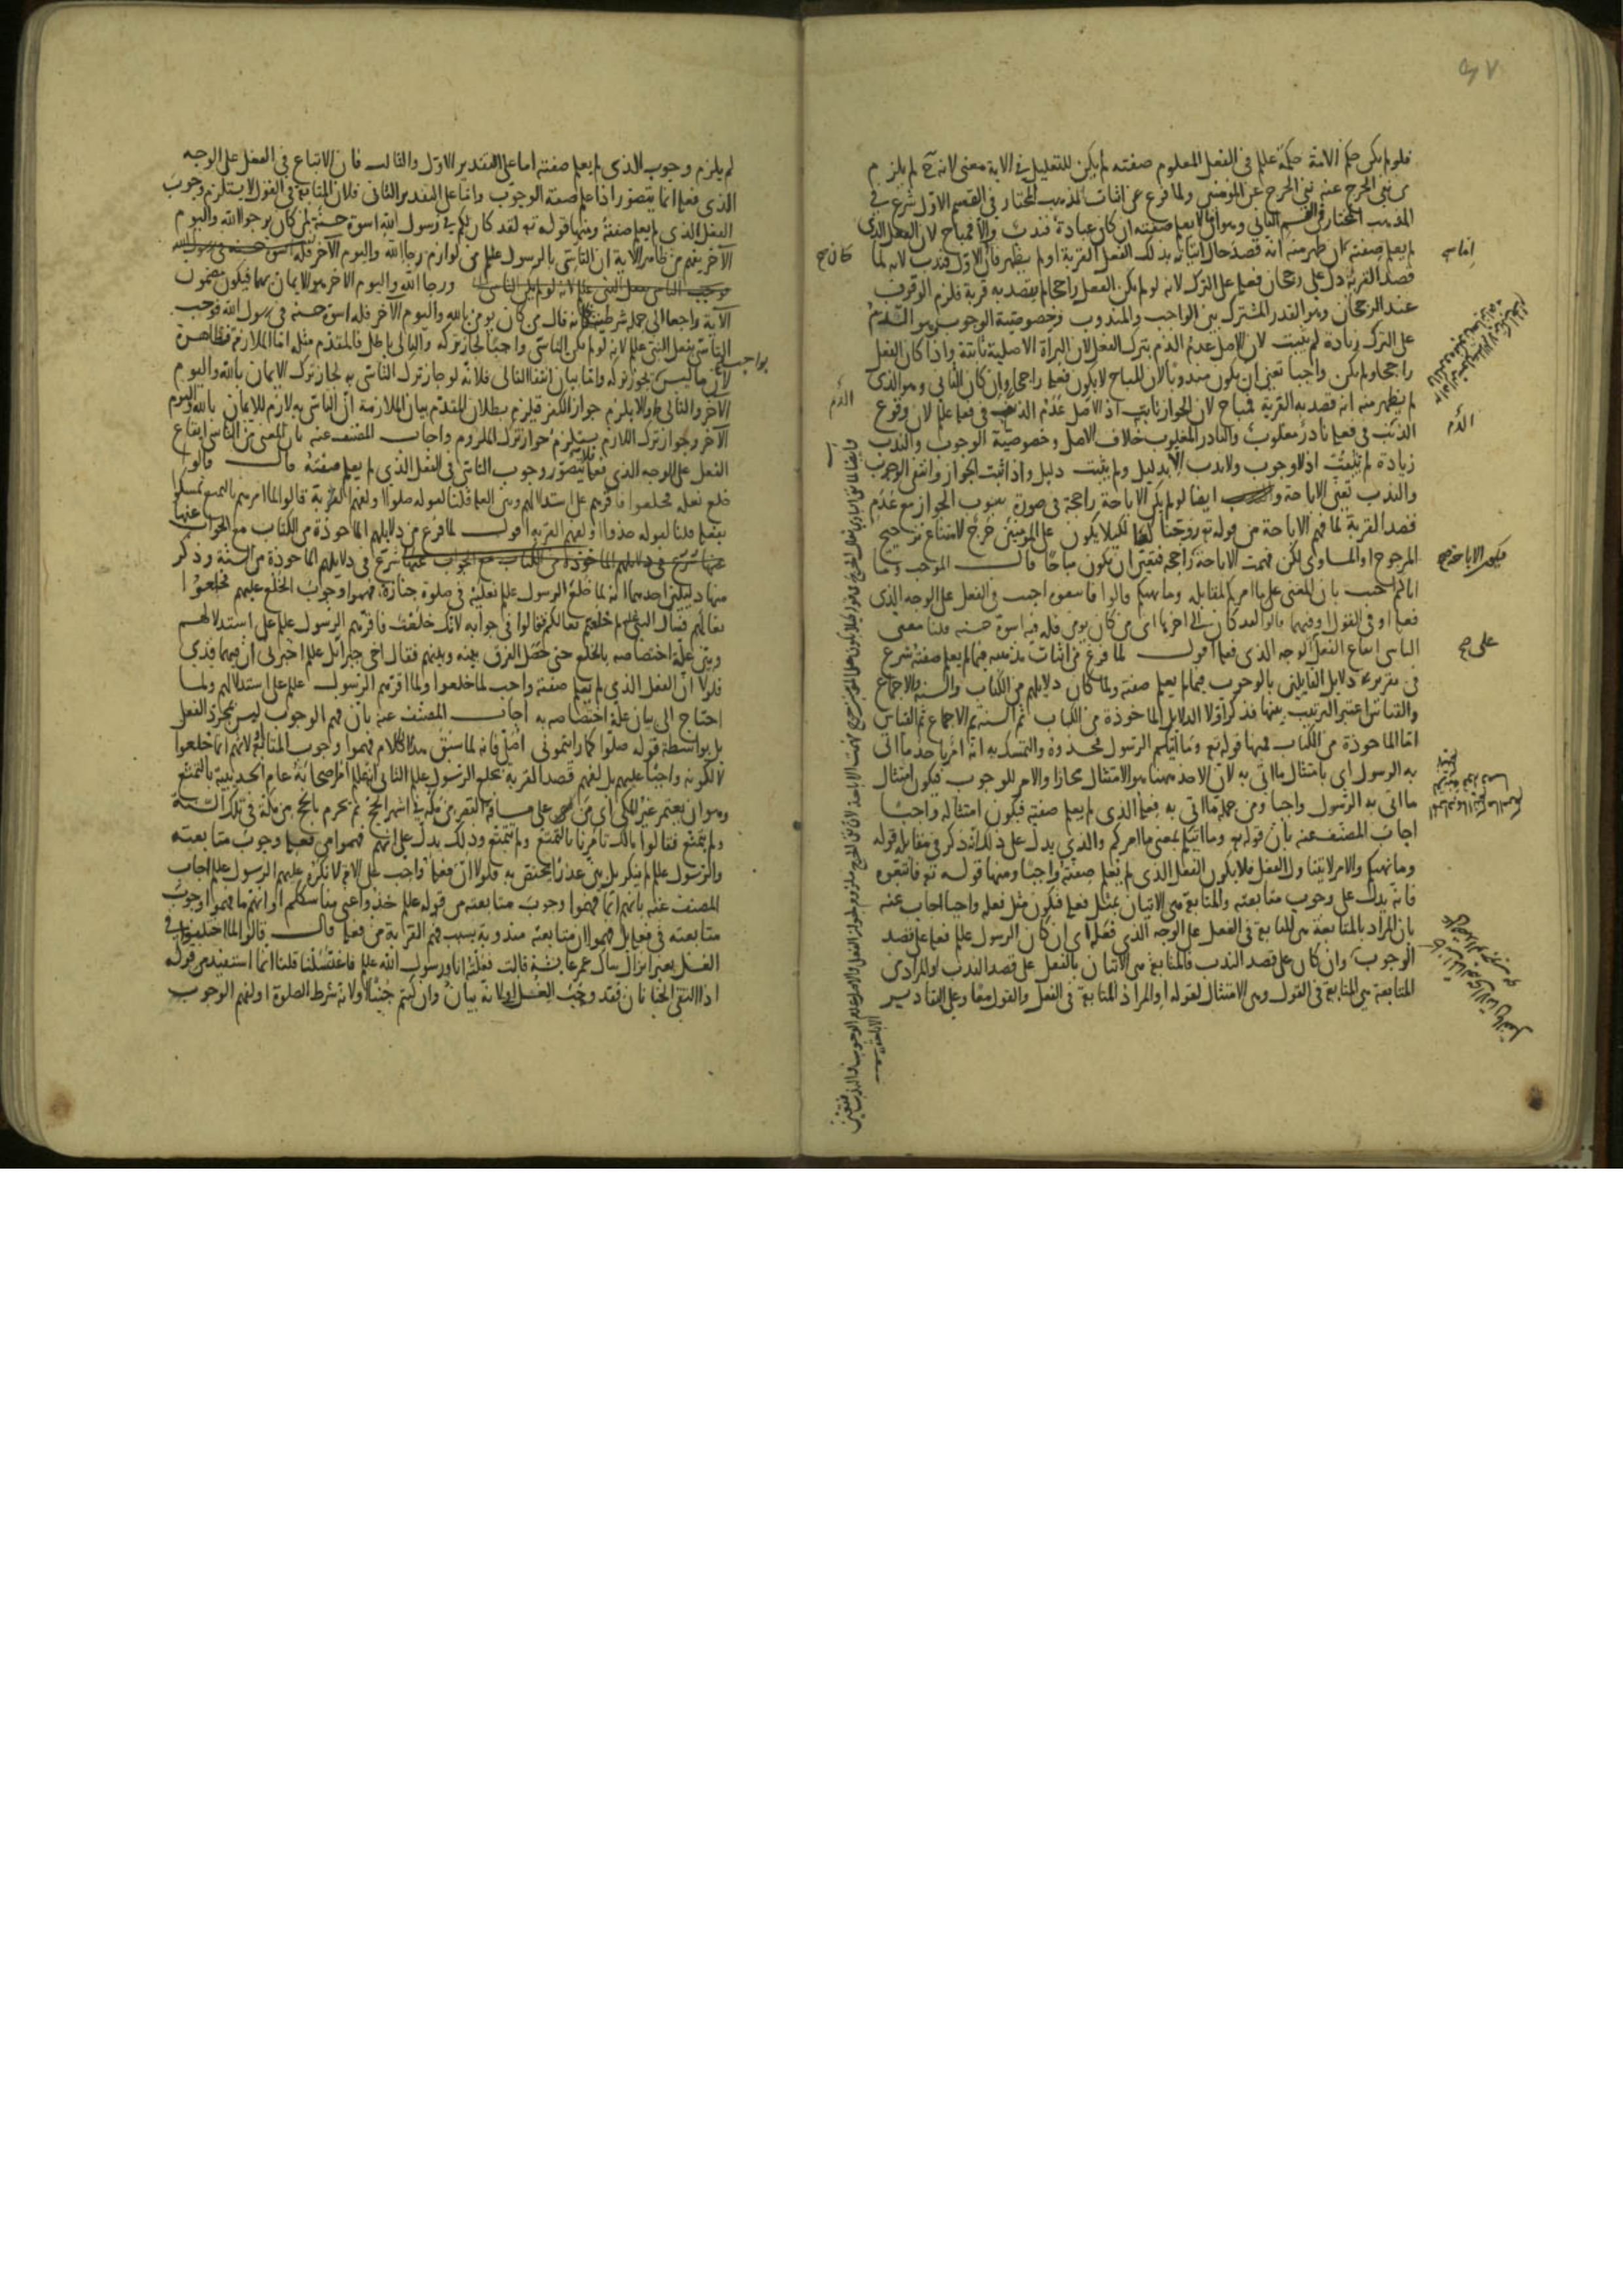 فلو لم يكن حكم الامة حكمه علم في الفعل المعلوم صفته لم يكن للتعليل في الاية معنى لانه ح لم يلزم
من نفي الحرج عنه نفي الحرج عن المؤمنين ولما فرغ عن اثبات المذهب المختار في القسم الاول شرع في
المذهب المختار في القسم الثاني وهو ان ما لا يعلم صفته ان كان عبادة فندب والا فمباح لان الفعل الذي
لم يعلم صفته ان ظهر منه انه قصد حال اتيانه بذلك الفعل القربة او لم يظهر فان الاول فندب لانه لما
قصد القربة دل على رجحان فعله على الترك لانه لو لم يكن الفعل راجحا لم يقصد به قربة فلزم الوقوف
عند الرجحان وهو القدر المشترك بين الواجب والمندوب وخصوصية الوجوب وهو الذم
على الترك زيادة لم يثبت لان الاصل عدم الذم بترك الفعل لان البراة الاصلية ثابتة واذا كان الفعل
راجحا ولم يكن واجبا تعين ان يكون مندوبا لان المباح لا يكون فعله راجحا وان كان الثاني وهو الذي
لم يظهر منه انه قصد به القربة فمباح لان الجواز ثابت اذ الاصل عدم الذنب في فعله علم لان وقوع
الذنب في فعله نادر مغلوب والنادر المغلوب خلاف الاصل وخصوصية الوجوب والندب
زيادة لم تثبت اذ لا وجوب ولا ندب الا بدليل ولم يثبت دليل واذا ثبت الجواز وانتفى الوجوب
والندب تعين الاباحة و ايضا لو لم يكن الاباحة راجحة في صورة ثبوت الجواز مع عدم
قصد القربة لما فهم الاباحة من قوله تع زوجنا كها لكيلا يكون على المؤمنين حرج لامتناع ترجيح
المرجوح او المساوي لكن فهمت الاباحة راجحه فتعين ان يكون مباحا قال الموجب وما
اتاكم اجيب بان المعنى على ما امركم لمقابله وما نهيكم قالوا فاتبعوه اجيب في الفعل على الوجه الذي
فعله او في القول او فيهما قالوا لقد كان الى اخرها اى من كان يؤمن فله فيه اسوة حسنه قلنا معنى
التاسي ايقاع الفعل الوجه الذي فعله اقول لما فرغ من اثبات مذهبه فيما لم يعلم صفته شرع
في تقرير دلايل القايلين بالوجوب فيما لم يعلم صفته ولما كان دلايلهم من الكتاب والسنه والاجماع
والقياس اعتبر الترتيب بينها فذكر اولا الدلايل الماخوذة من الكتاب ثم السنه ثم الاجماع ثم القياس
اما الماخوذة من الكتاب فمنها قوله تع وما اتيكم الرسول فخذوه والتمسك به انه امر باخذ ما اتى
به الرسول اي بامتثال ما اتى به لان الاخذ ههنا هو الامتثال مجازا والامر للوجوب فيكون امتثال
ما اتى به الرسول واجبا ومن جملة ما اتى به فعله الذي لم يعلم صفته فيكون امتثاله واجبا
اجاب المصنف عنه بان قوله تع وما اتيكم بمعنى ما امركم والذي يدل على ذلك انه ذكر في مقابله قوله
وما نهيكم والامر لا يتناول الفعل فلا يكون الفعل الذي لم تعلم صفته واجبا ومنها قوله تع فاتبعوه
فانه يدل على وجوب متابعته والمتابعة هى الاتيان بمثل فعله فيكون مثل فعله واجبا اجاب عنه
بان المراد بالمتابعة هى المتابعة في الفعل على الوجه الذي فعله اي ان كان الرسول علم فعله على قصد
الوجوب وان كان على قصد الندب فالمتابعة هى الاتيان بالفعل على قصد الندب او المراد من
المتابعة هى المتابعة في القول وهى الامتثال لقوله او المراد المتابعة في الفعل والقول معا وعلى التقادير
كان صح
الذم
على صح
لم يلزم وجوب الذى لم يعلم صفته اما على التقدير الاول والثالث فان الاتباع في الفعل على الوجه
الذي فعله انما يتصور اذا علم صفة الوجوب واما على التقدير الثاني فلان المتابعة في القول لا يستلزم وجوب
الفعل الذي لم يعلم صفته ومنها قوله تع لقد كان لكم في رسول الله اسوة حسنة لمن كان يرجو الله واليوم
الآخر يفهم من ظاهر الاية ان التاسى بالرسول علم من لوازم رجا الله واليوم الآخر
ورجا الله واليوم الاخر هو الايمان بهما فيكون مضمون
الاية راجعا الى جملة شرطية كانه قال من كان يؤمن بالله واليوم الآخر فله اسوة حسنه في رسول الله فوجب
التاسى بفعل النبي علم لانه لو لم يكن التاسى واجبا لجاز تركه والتالى باطل فالمقدم مثله اما الملازمة فظاهرة
لان ما ليس بواجب يجوز تركه واما بيان انتفا التالى فلانه لو جاز ترك التاسى به لجاز ترك الايمان بالله واليوم
الآخر والتالى والا يلزم جواز الكفر فيلزم بطلان المقدم بيان الملازمة ان التاسى به لازم للايمان بالله واليوم
الآخر وجواز ترك اللازم يستلزم جواز ترك الملزوم واجاب المصنف عنه بان المعنى من التاسى ايقاع
الفعل على الوجه الذي فعله فلا يتصور وجوب التاسى في الفعل الذي لم يعلم صفته قال قالوا
خلع نعله فخلعوا فاقرهم على استدلالهم وبين العلة قلنا لقوله صلوا او لفهم القربة قالوا لما امرهم بالتمتع تمسكوا
بفعله قلنا لقوله خذوا او لفهم القربه اقول لما فرغ من دلايلهم الماخوذة من الكتاب مع الجواب عنها
شرع في دلايلهم الماخوذة من السنة وذكر
منها دليلين احدهما انه لما خلع الرسول علم نعليه في صلوة جنازة فهموا وجوب الخلع عليهم فخلعوا
نعالهم فقال النبي لم خلعتم نعالكم فقالوا في جوابه لانك خلعت فاقرهم الرسول علم على استدلالهم
وبين علة اختصاصه بالخلع حتى حصل الفرق بينه وبينهم فقال اخى جبرائل علم اخبرنى ان فيهما قذى
فلولا ان الفعل الذي لم تعلم صفته واجب لما خلعوا ولما اقرهم الرسول علم على استدلالهم ولما
احتاج الى بيان علة اختصاصه به اجاب المصنف عنه بان فهم الوجوب ليس بمجرد الفعل
بل بواسطة قوله صلوا كما رايتمونى اصلى فانه لما سبق هذا الكلام فهموا وجوب المتابعة لانهم انما خلعوا
لا لكونه واجبا عليهم بل لفهم قصد القربة بخلع الرسول علم الثانى انه علم امر اصحابه عام الحديبية بالتمتع
وهو ان يعتمر غير المكي اى من على مسافة القصر من مكة في اشهر الحج ثم يحرم بالحج من مكة في تلك السنة
ولم يتمتع فقالوا ما لك تامرنا بالتمتع ولم تتمتع وذلك يدل على انهم فهموا من فعله وجوب متابعته
والرسول علم لم ينكر بل بين عذرا يختص به فلولا ان فعله واجب على الامة لانكره عليهم الرسول علم اجاب
المصنف عنه بانهم انما فهموا وجوب متابعته من قوله علم خذوا عنى مناسككم او انهم ما فهموا وجوب
متابعته في فعله بل فهموا ان متابعته مندوبة بسبب فهم القرابة من فعله قال قالوا لما اختلفوا في
الغسل بغير انزال سال عمر عايشة قالت فعلته انا ورسول الله علم فاغتسلنا قلنا انما استفيد من قوله
اذا التقى الختانان فقد وجب الغسل او لانه بيان وان كنتم جنبا او لانه شرط الصلوة او لفهم الوجوب